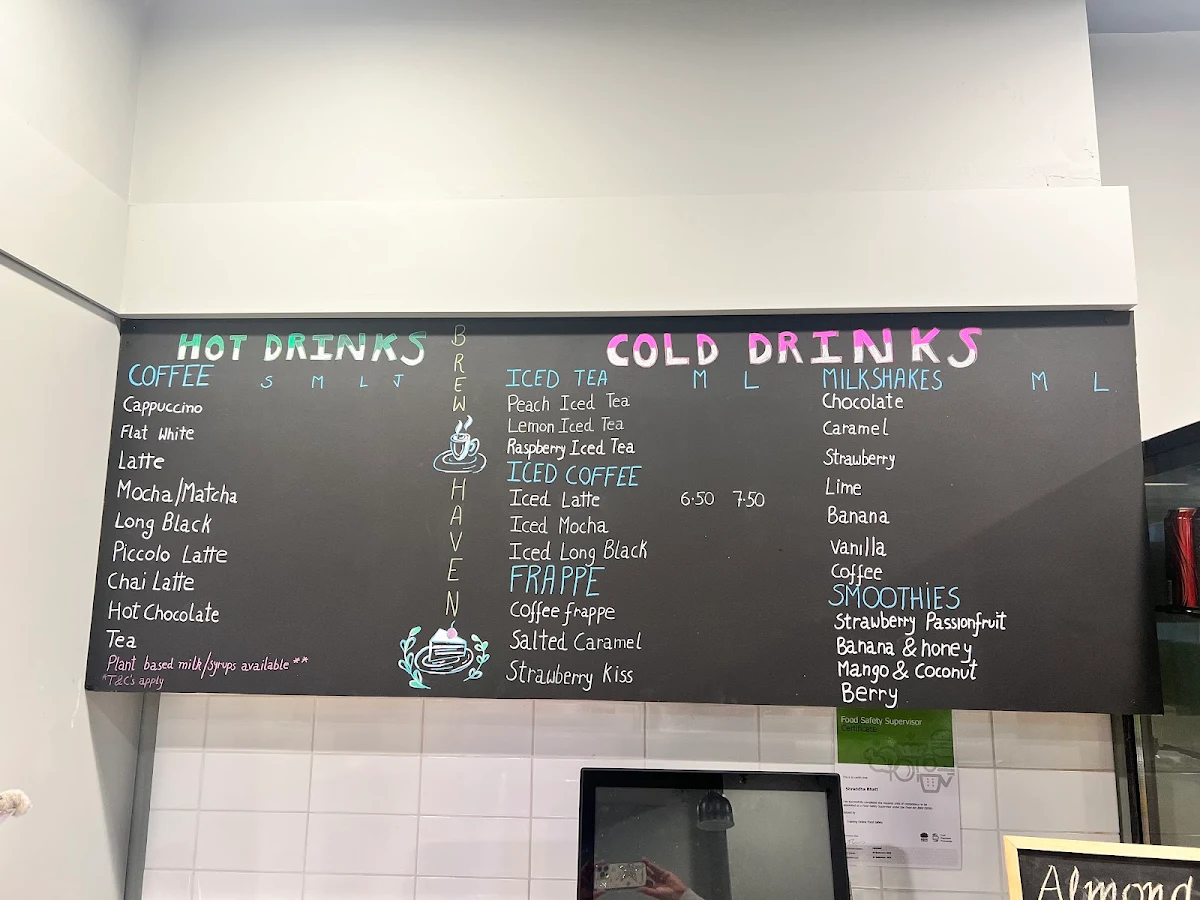 HOT DRINKS
COFFEE S M L J
Cappuccino
Flat White
Latte
Mocha/Matcha
Long Black
Piccolo Latte
Chai Latte
Hot Chocolate
Tea
Plant based milk/syrups available **
*T&C's apply
BREW
HAVEN
COLD DRINKS
ICED TEA M L
Peach Iced Tea
Lemon Iced Tea
Raspberry Iced Tea
ICED COFFEE
Iced Latte 6.50 7.50
Iced Mocha
Iced Long Black
FRAPPE
Coffee frappe
Salted Caramel
Strawberry Kiss
MILKSHAKES M L
Chocolate
Caramel
Strawberry
Lime
Banana
Vanilla
Coffee
SMOOTHIES
Strawberry Passionfruit
Banana & honey
Mango & Coconut
Berry
Food Safety Supervisor
Certificate
Almond